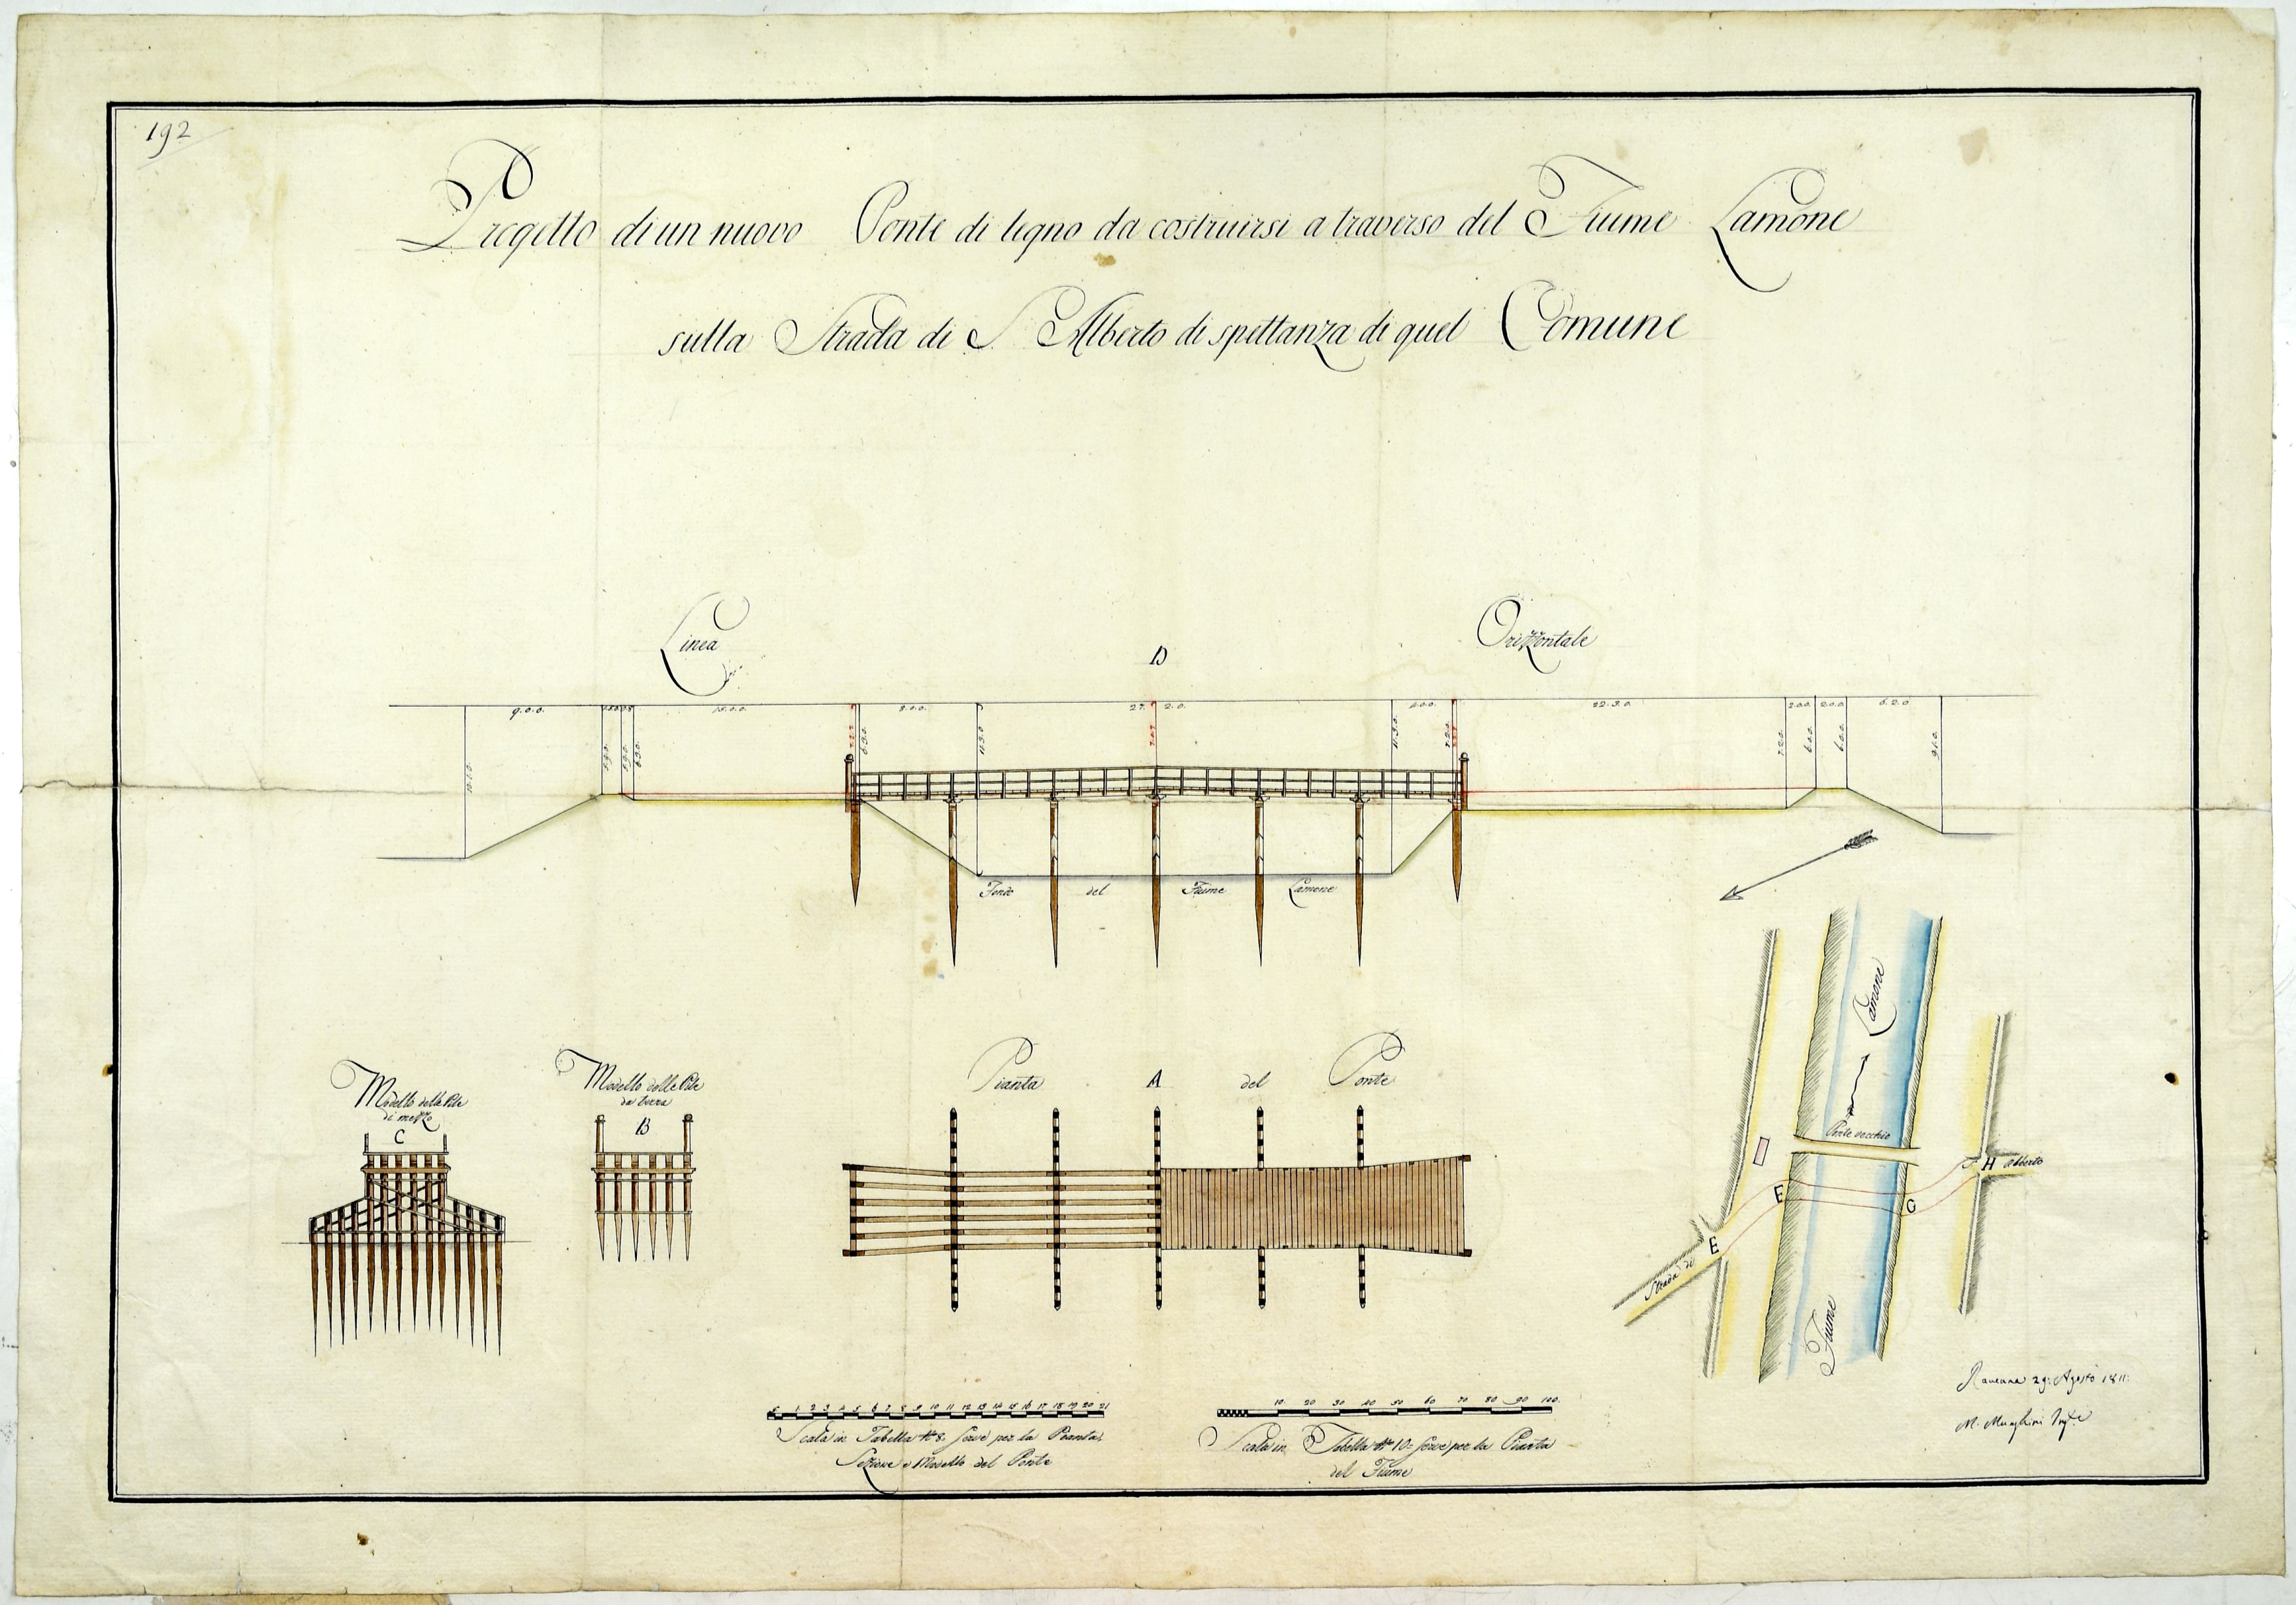 192
Progetto di un nuovo Ponte di legno da costruirsi a traverso del Fiume Lamone
sulla Strada di S. Alberto di spettanza di quel Comune
Linea Orizzontale
D
9.0.0. 15.0.0. 8.0.0. 27. 2.0. 4.0.0. 22.3.0. 2.0.0. 2.0.0. 6.2.0
10.1.0. 5.9.0. 5.9.0. 6.3.0. 6.3.0. 11.3.0 11.3.0. 7.2.0. 7.2.0. 6.0.0. 6.0.0. 9.1.0.
Fondo del Fiume Lamone
Modello delle Pile
di mezzo
C
Modello delle Pile
da terra
B
Pianta A del Ponte
Lamone
Ponte vecchio
S. H Alberto
F
G
E
Strada di
Fiume
1 2 3 4 5 6 7 8 9 10 11 12 13 14 15 16 17 18 19 20 21
Scala in Tabella N. 8. serve per la Pianta,
Sezione e Modello del Ponte
10 20 30 40 50 60 70 80 90 100
Scala in Tabella N. 10 = serve per la Pianta
del Fiume
Ravenna 29: Agosto 1811:
M.